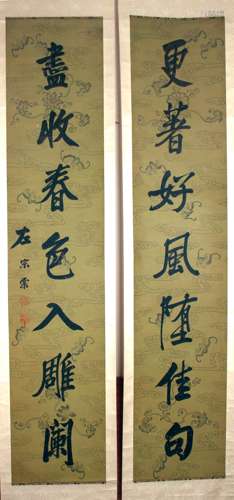 更著好風堕佳句
盡收春色入雕闌
左宗棠